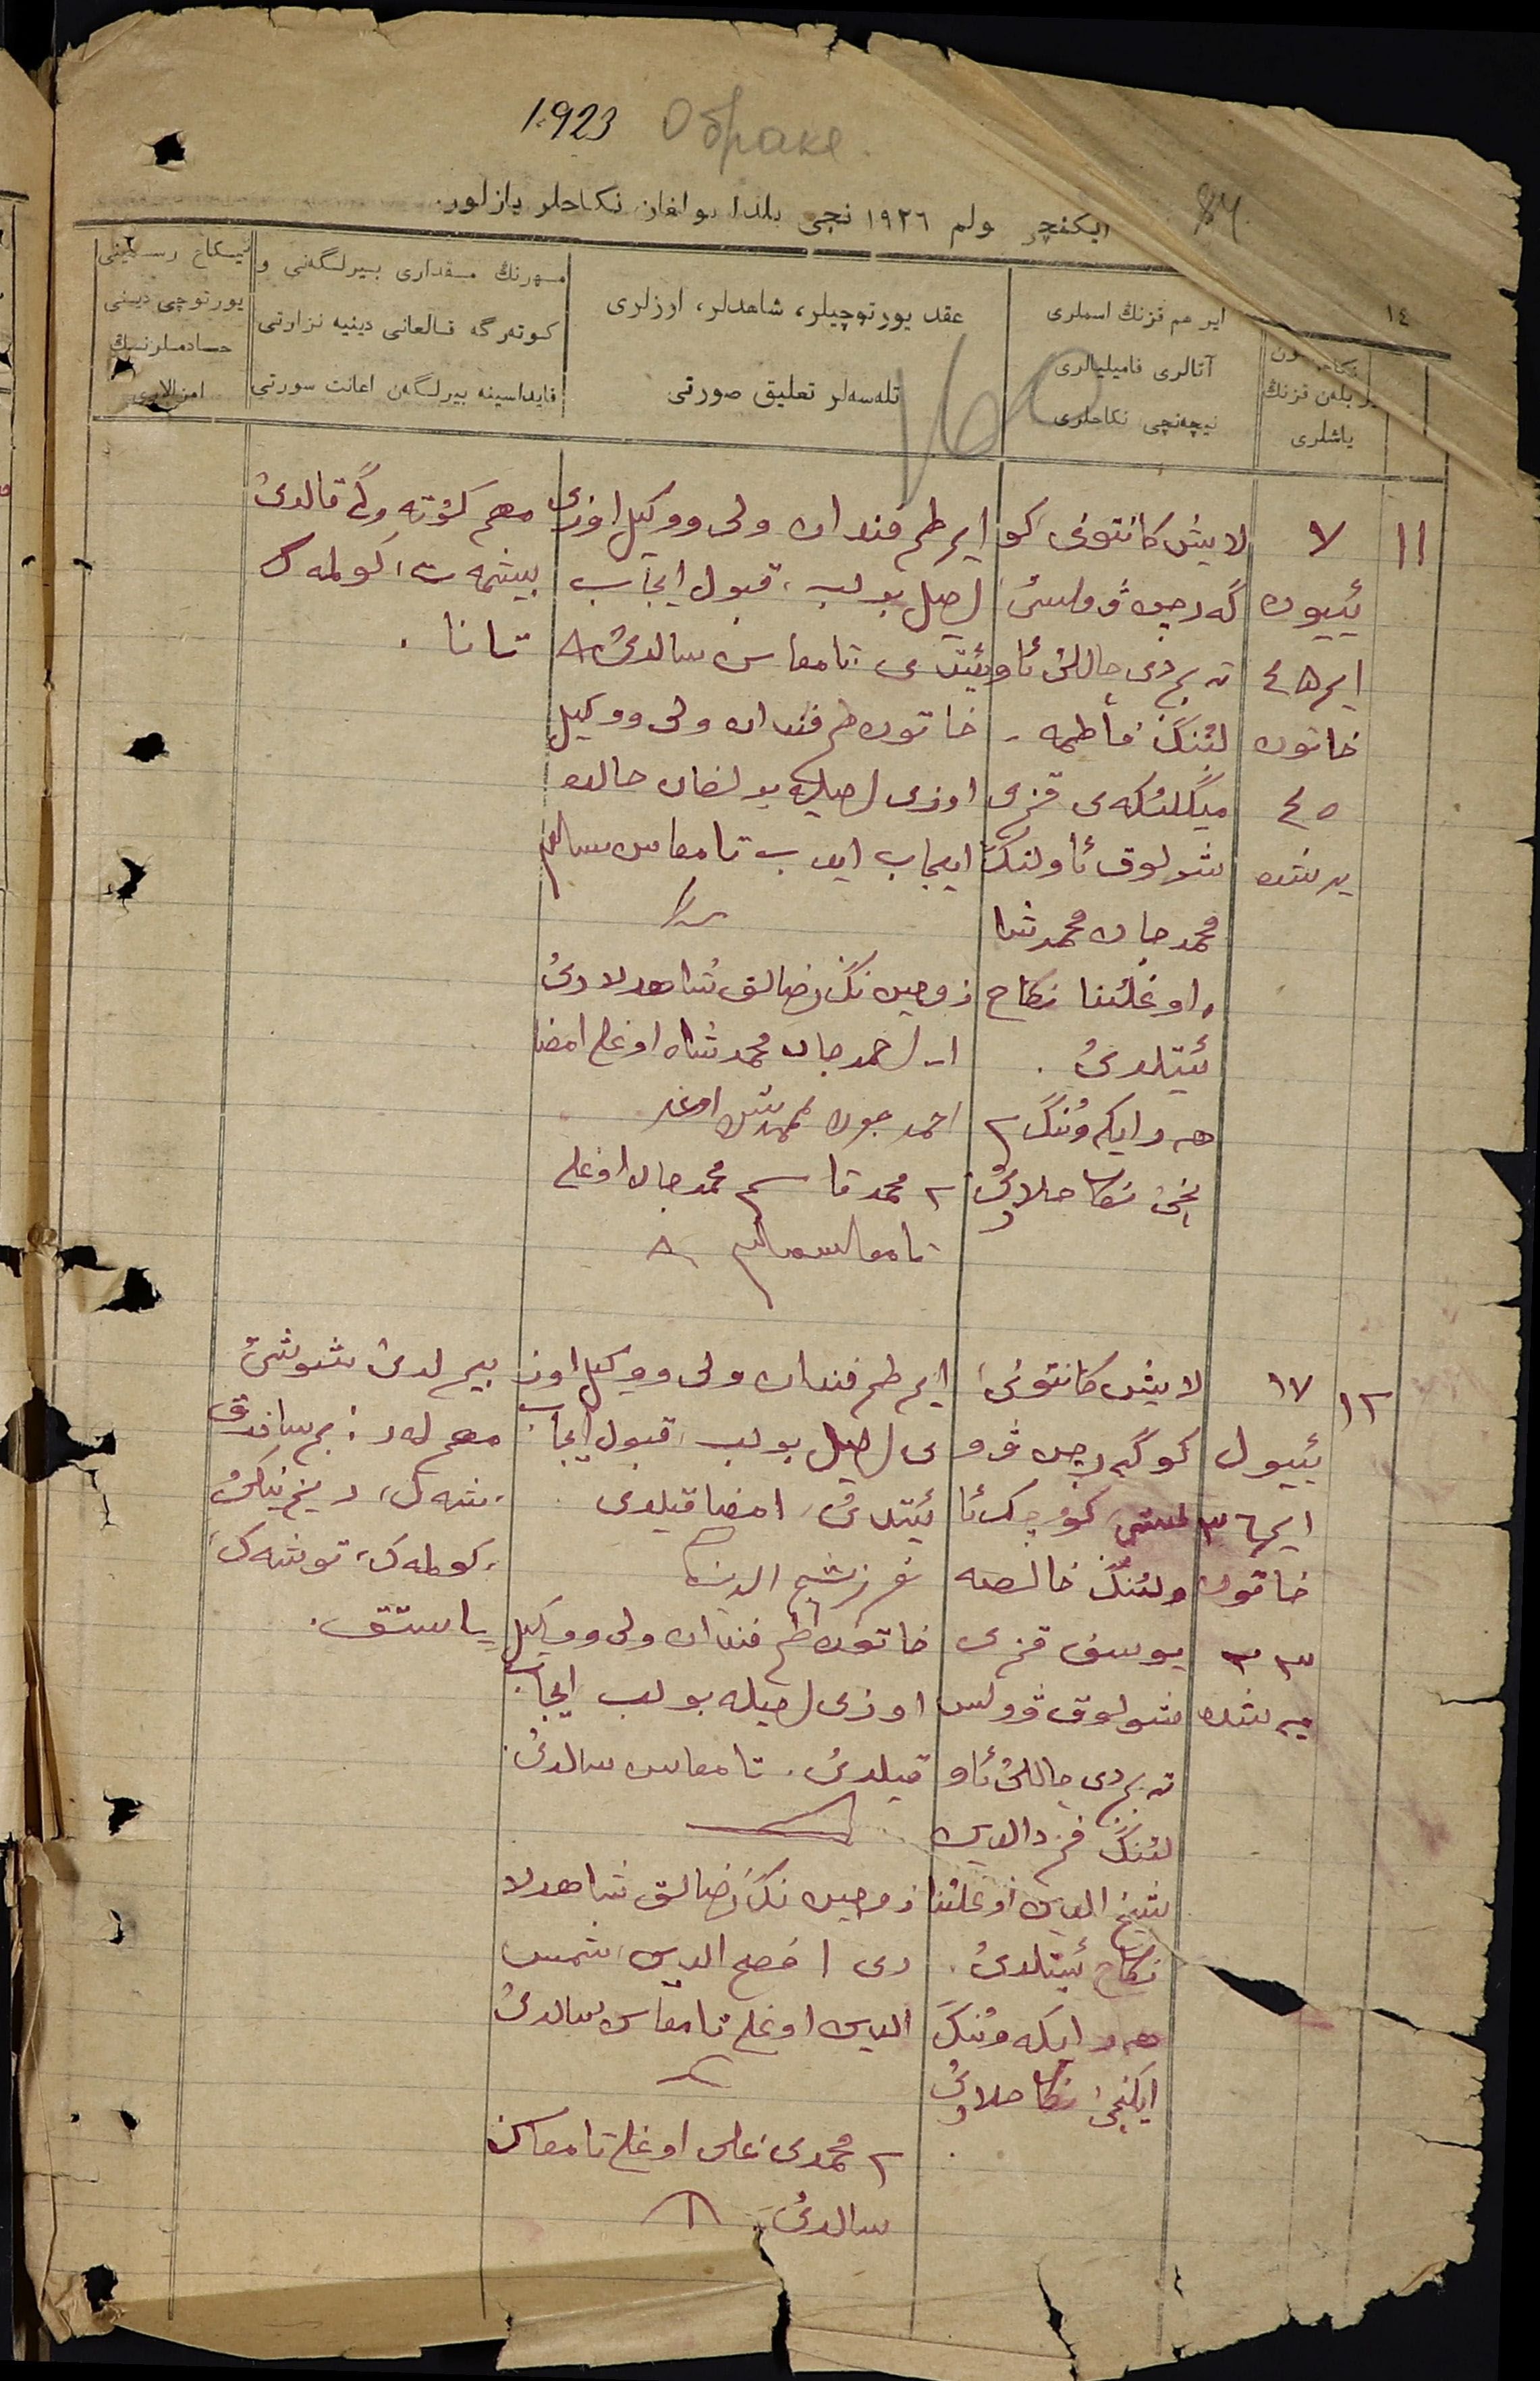 1923 О браке.
84
ایکنچی بولم ١٩٢٦ نچی یلدا بولغان نکاحلر یازلور.
١٤
بر بلەن قزنڭ
یاشلری
ایر هم قزنڭ اسملری
آتالری فامیلیالری
نیچەنچی نکاحلری
عقد یورتوچیلر، شاهدلر، اوزلری
تلەسەلر تعلیق صورتی
مهرنڭ مقداری بیرلگەنی و
کوتەرگە قالغانی دینیه نزارتی
فایداسینه بیرلگەن اعانت سورتی
نیکاح رسمینی
یورتوچی دینی
خادملرنینڭ
امزالاری
١١
٧
ئییون
ایر ٤٥
خاتون
٤٥
یرشده
لایش کانتونی کو
گەرچن ڤولسئ
تەبردی جاللئ ئاو
لئنڭ فاطمه
میڭلئکەی قزی
شولوق ئاولنڭ
محمدجان محمدشا
اوغلئنا نکاح
ئیتلدئ.
هەر ایکەوئنڭ ٢
نچئ نکاحلارئ
ایر طرفندان ولی ووکیل اوزی
اصیل بولب، قبول ایجاب
ئیتدی تامغاس سالدئ
خاتون طرفندان ولی ووکیل
اوزی اصیله بولغان حالده
ایجاب ایدب تامغاس سالدی
زوجین نڭ رضالق شاهدلارئ
١ـ احمدجان محمدشاه اوغلی امضا
احمدجون محمدشن اوغلی
٢ محمدقاسم محمدجان اوغلی
مهر کوتەرگە قالدئ
بیشمەت، کولمەک
تانا.
١٢
١٧
ئییول
ایر ٣٦
خاتون
٣٣
یرشده
لایش کانتونئ
کوگەرچن ڤو
لستئ کوچک ئا
ولئنڭ خالصه
یوسف قزی
شولوق ڤولس
تەبردی جاللئ ئاو
لئنڭ فخرالدین
شیخ الدین اوغلئنا
نکاح ئیتلدئ.
هەر ایکەوئنڭ
ایکنچئ نکاحلارئ
ایر طرفندان ولی ووکیل اوز
ی اصیل بولب، قبول ایجاب
ئیتدئ، امضا قیلدی
خاتون طرفندان ولی ووکیل
اوزی اصیله بولب ایجاب
قیلدئ. تامغاس سالدئ.
زوجین نڭ رضالق شاهدلا
رئ ١ فصح الدین شمس
الدین اوغلی تامغاس سالدئ
٢ محمدی علی اوغلی تامغاسن
سالدئ
بیرلدئ شوشئ
مهرلەر: بر ساندق
کولمەک، توشەک،
یاستق.